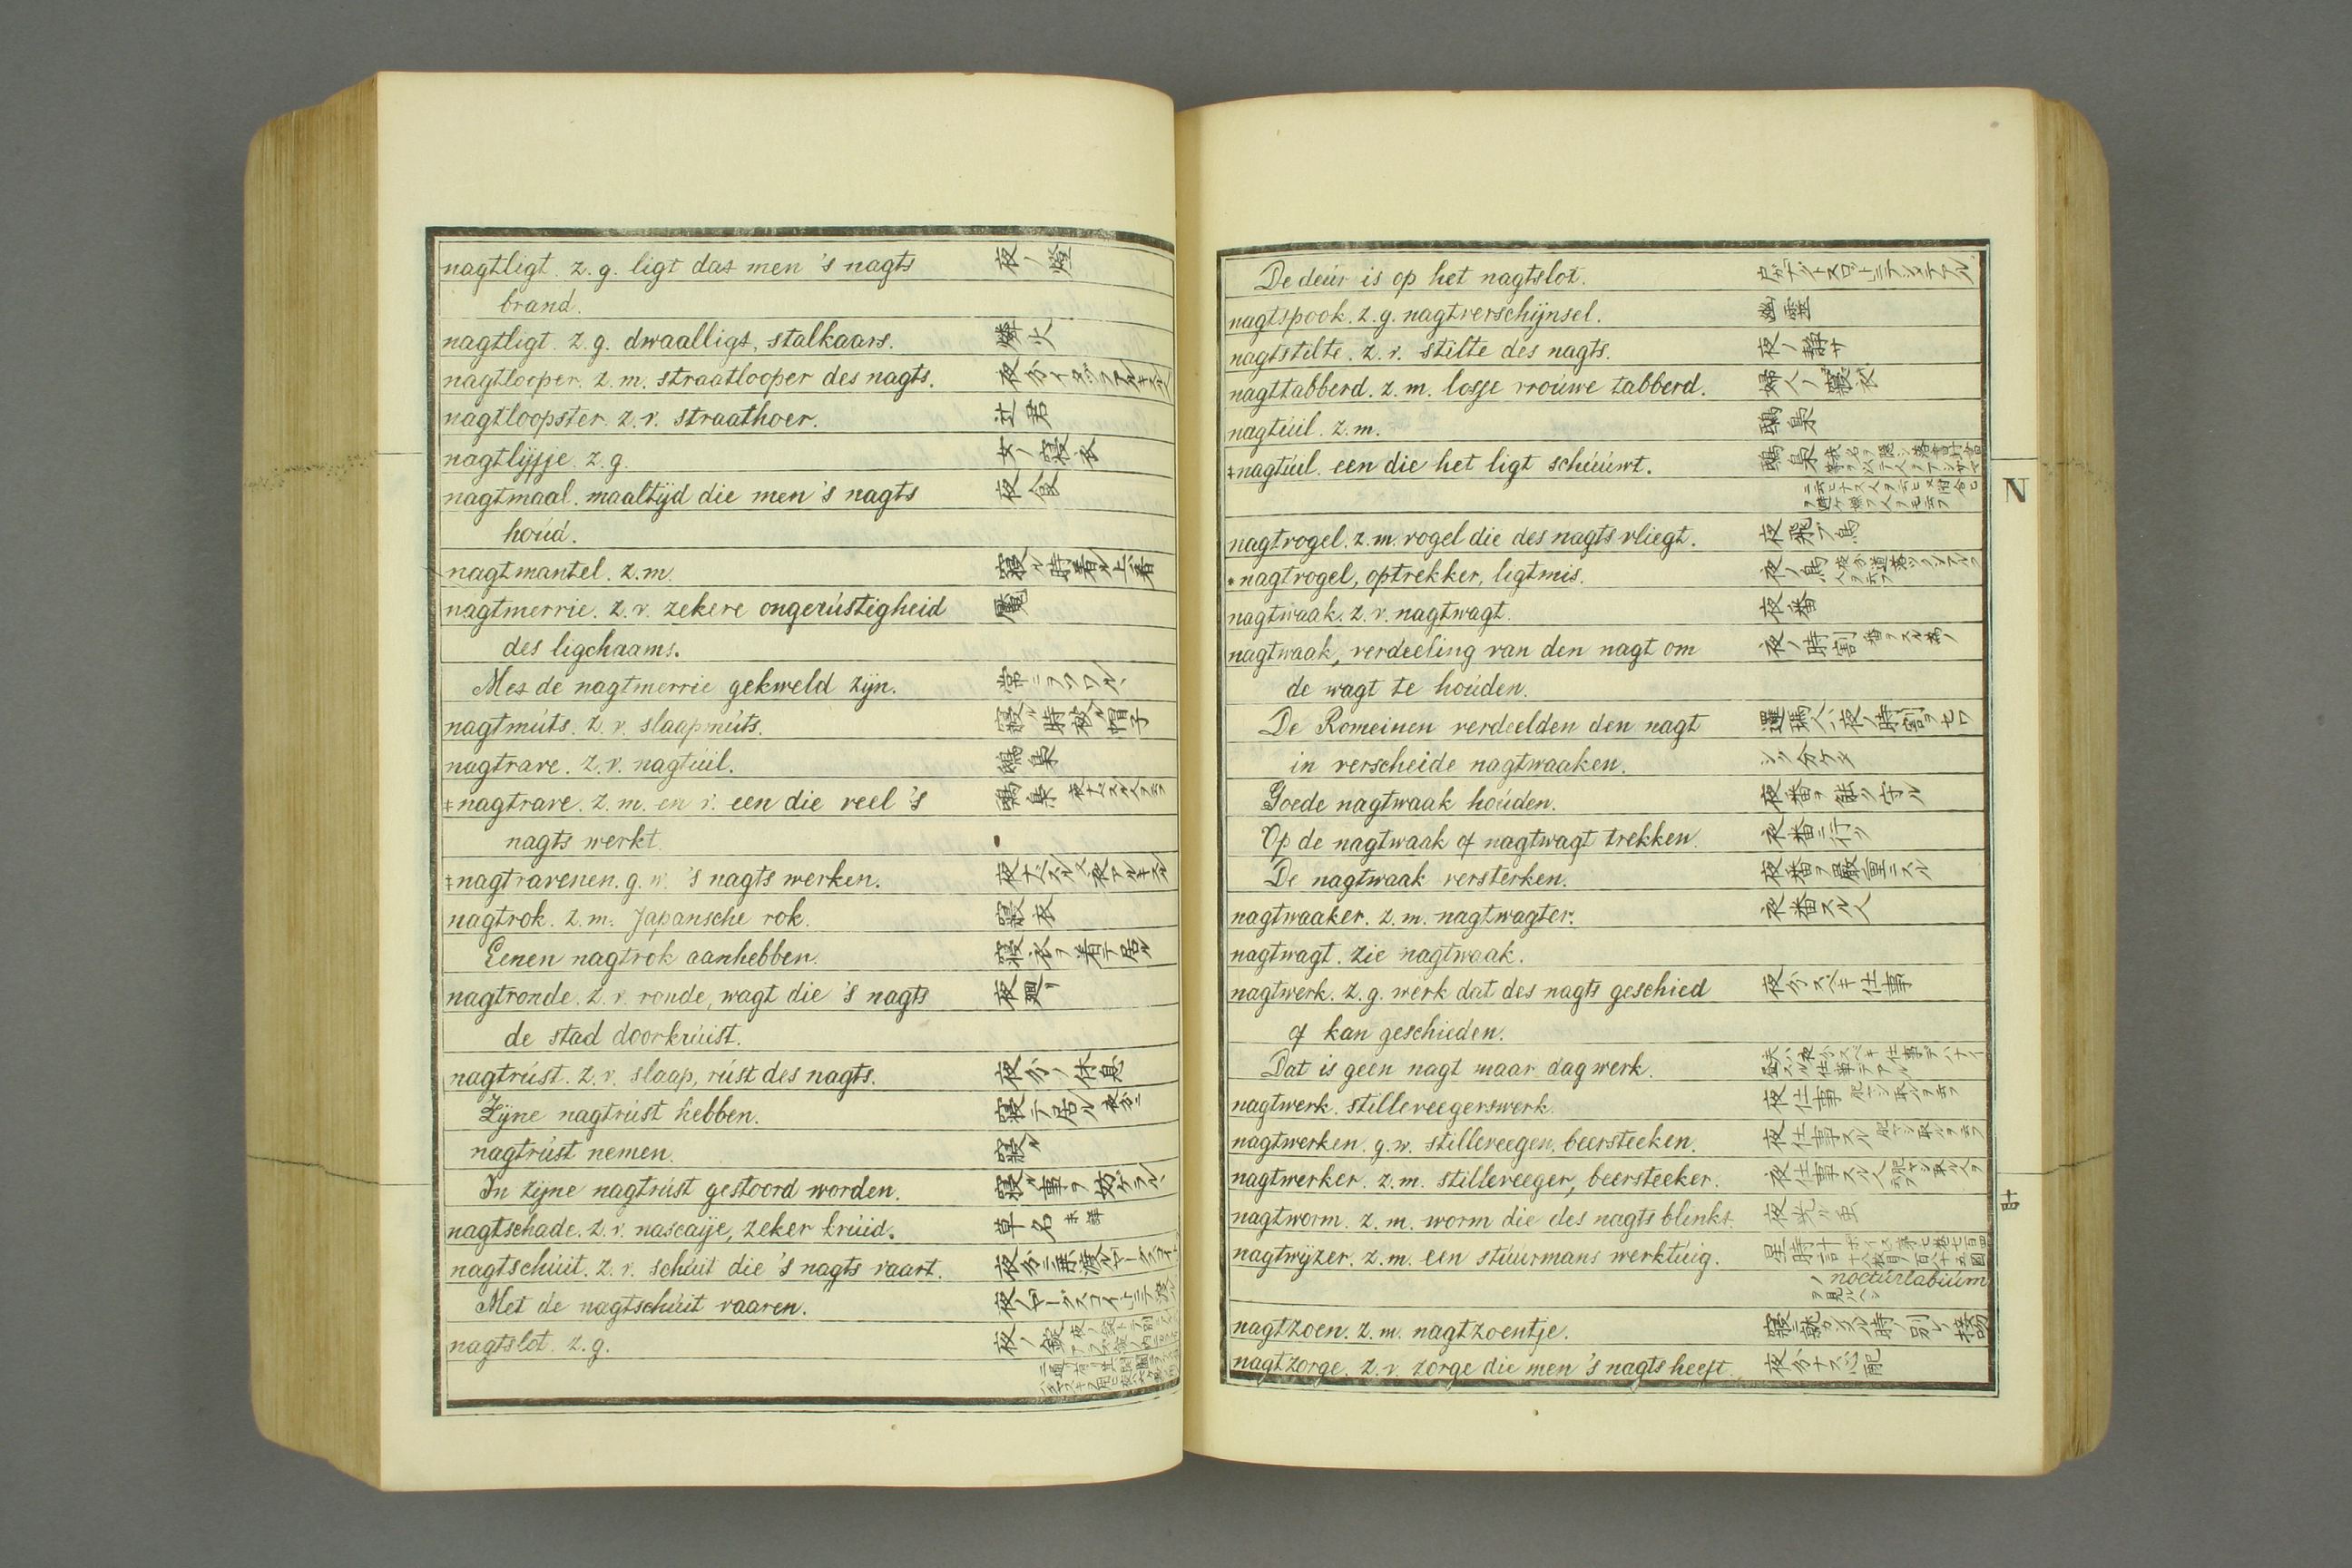 nagtligt. z. g. ligt dat men 's nagts 夜ノ燈
brand.
nagtligt. z. g. dwaalligt, stalkaars. 燐火
nagtlooper. z. m. straatlooper des nagts. 夜分
nagtloopster. z. v. straathoer. 辻君
nagtlijfje. z. g. 女ノ寝衣
nagtmaal. maaltijd die men 's nagts 夜食
houd.
nagtmantel. z. m. 寝ル時着ル上着
nagtmerrie. z. v. zekere ongerustigheid 魘
des ligchaams.
Met de nagtmerrie gekweld zijn. 常ニヲソワルヽ
nagtmuts. z. v. slaapmuts. 寝ル時被ル帽子
nagtrave. z. v. nagtuil. 鴟梟
‡nagtrave. z. m. en v. een die veel 's 鴟梟
nagts werkt.
‡nagtravenen. g. w. 's nagts werken.
nagtrok. z. m. Japansche rok. 寝衣
Eenen nagtrok aanhebben. 寝衣ヲ着テ居ル
nagtronde. z. v. ronde, wagt die 's nagts 夜廻リ
de stad doorkruist.
nagtrust. z. v. slaap, rust des nagts. 夜分ノ休息
Zijne nagtrust hebben. 寝テ居ル
nagtrust nemen. 寝ル
In zijne nagtrust gestoord worden. 寝ル事ヲ妨ケラルヽ
nagtschade. z. v. nascaije, zeker kruid. 草名 未詳
nagtschuit. z. v. schuit die 's nagts vaart.
Met de nagtschuit vaaren.
nagtslot. z. g. 夜ノ錠
De deur is op het nagtslot.
nagtspook. z. g. nagtverschijnsel. 幽霊
nagtstilte. z. v. stilte des nagts. 夜ノ静サ
nagttabberd. z. m. losse vrouwe tabberd. 婦人ノ寝衣
nagtuil. z. m. 鴟梟
‡nagtuil. een die het ligt schuuwt. 鴟梟
N
nagtvogel. z. m. vogel die des nagts vliegt. 夜飛ブ鳥
*nagtvogel, optrekker, ligtmis. 夜ノ鳥
nagtwaak. z. v. nagtwagt. 夜番
nagtwaak, verdeeling van den nagt om 夜ノ時割 番ヲスル為ノ
de wagt te houden.
De Romeinen verdeelden den nagt 邏瑪人ハ夜ノ時割ヲ七ツ
in verscheide nagtwaaken.
Goede nagtwaak houden. 夜番ヲ能ク守ル
Op de nagtwaak of nagtwagt trekken. 夜番ニ行ク
De nagtwaak versterken. 夜番ヲ嚴重ニスル
nagtwaaker. z. m. nagtwagter. 夜番スル人
nagtwagt. zie nagtwaak.
nagtwerk. z. g. werk dat des nagts geschied 夜分スベキ仕事
of kan geschieden.
Dat is geen nagt maar dagwerk.
nagtwerk. stilleveegerswerk. 夜仕事
nagtwerken. g. w. stilleveegen, beersteeken. 夜仕事スル
nagtwerker. z. m. stilleveeger, beersteeker. 夜仕事スル人
nagtworm. z. m. worm die des nagts blinkt. 夜光ル虫
nagtwijzer. z. m. een stuurmans werktuig. 星時計
nocturlabium
ヲ見ルヘシ
nagtzoen. z. m. nagtzoentje.
nagtzorge. z. v. zorge die men 's nagts heeft. 夜分ナス心配